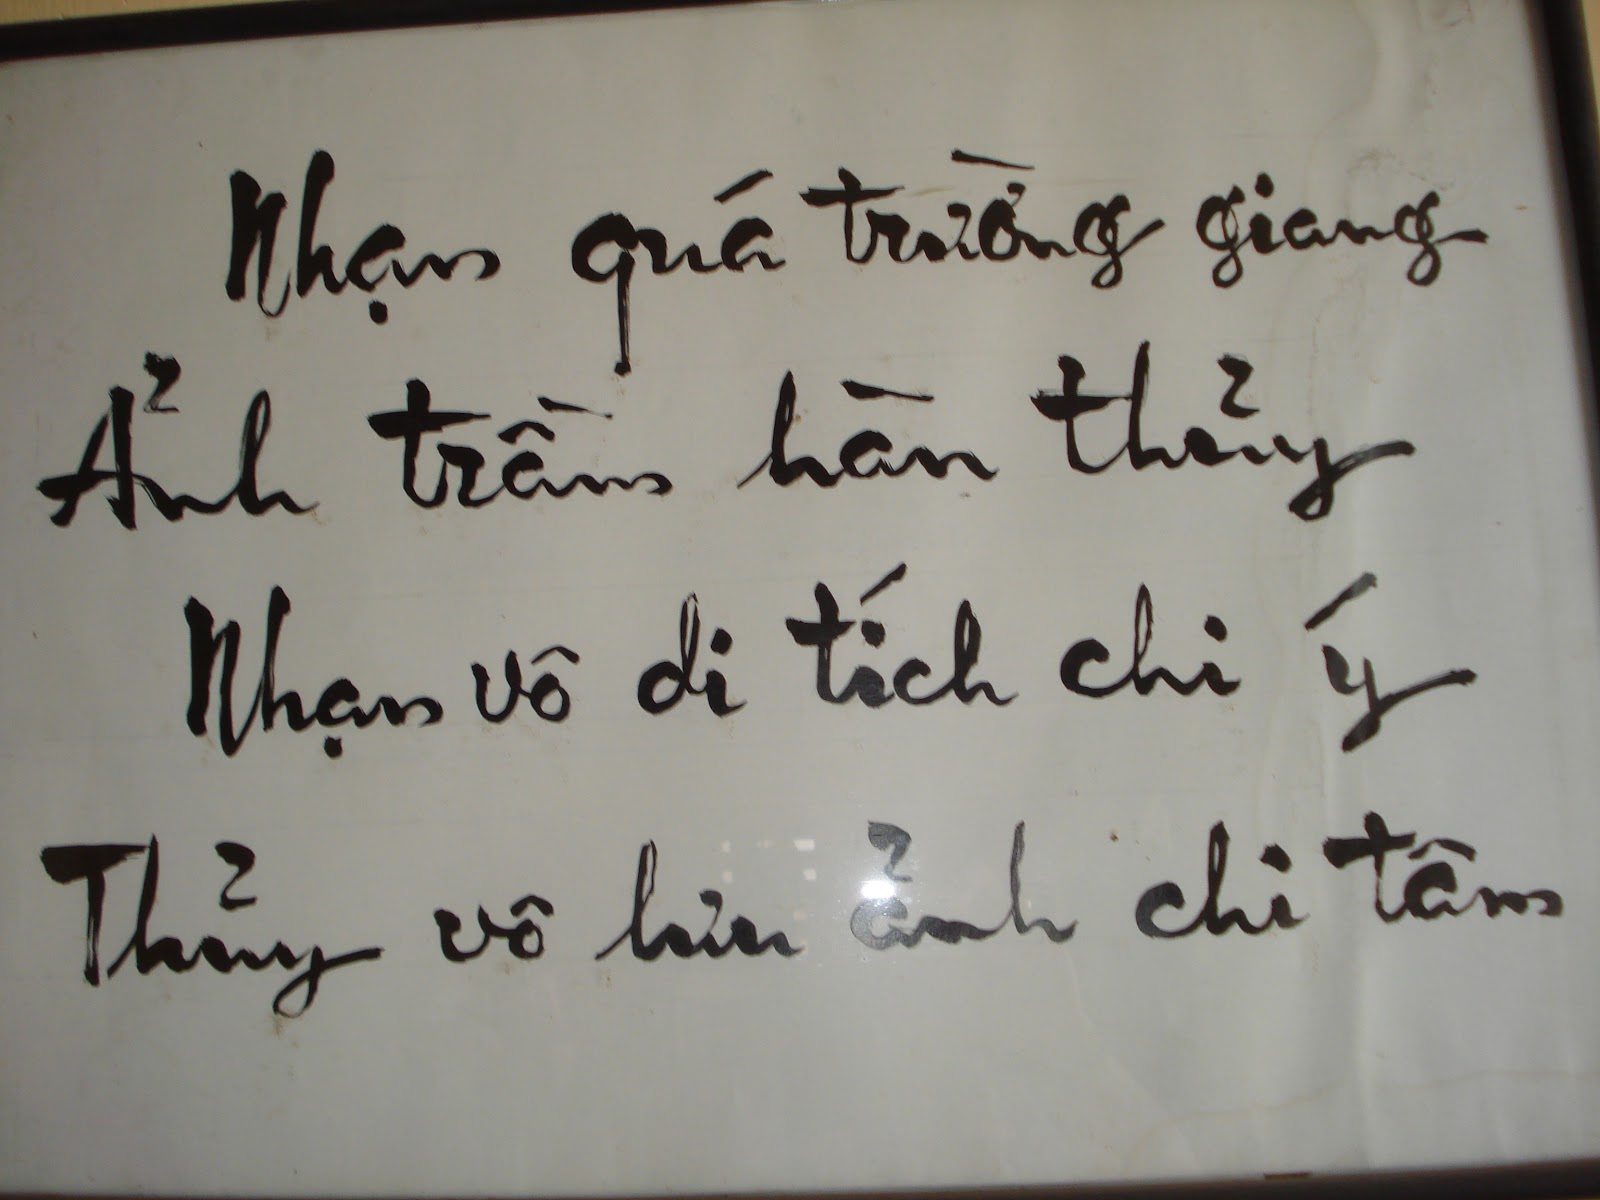 Nhạn quá trường giang
Ảnh trầm hàn thủy
Nhạn vô di tích chi ý
Thủy vô lưu ảnh chi tâm